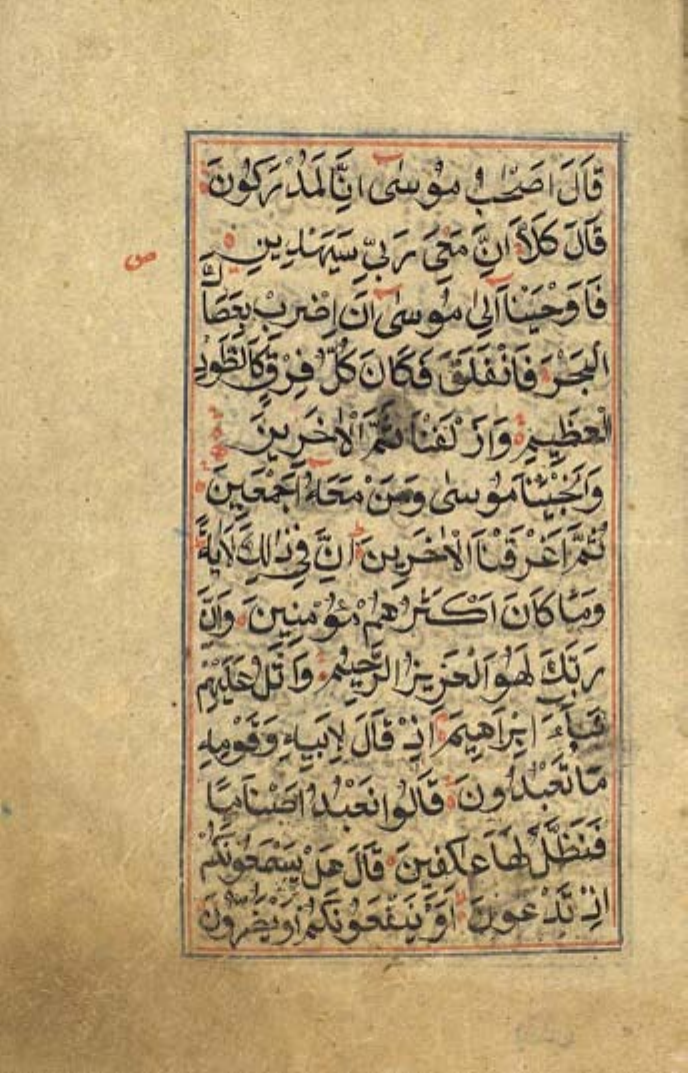 قَالَ اَصْحٰبُ مُوْسٰى اِنَّا لَمُدْرَكُوْنَ
قَالَ كَلَّا اِنَّ مَعِىَ رَبِّىْ سَيَهْدِيْنِ
ص
فَاَوْحَيْنَا اِلٰى مُوْسٰى اَنِ اضْرِبْ بِعَصَاكَ
الْبَحْرَ فَانْفَلَقَ فَكَانَ كُلُّ فِرْقٍ كَالطَّوْدِ
الْعَظِيْمِ وَاَزْلَفْنَا ثَمَّ الْاٰخَرِيْنَ
وَاَنْجَيْنَا مُوْسٰى وَمَنْ مَعَهٗ اَجْمَعِيْنَ
ثُمَّ اَغْرَقْنَا الْاٰخَرِيْنَ اِنَّ فِىْ ذٰلِكَ لَاٰيَةً
وَمَا كَانَ اَكْثَرُهُمْ مُؤْمِنِيْنَ وَاِنَّ
رَبَّكَ لَهُوَ الْعَزِيْزُ الرَّحِيْمُ وَاتْلُ عَلَيْهِمْ
نَبَاَ اِبْرَاهِيْمَ اِذْ قَالَ لِاَبِيْهِ وَقَوْمِهٖ
مَا تَعْبُدُوْنَ قَالُوْا نَعْبُدُ اَصْنَامًا
فَنَظَلُّ لَهَا عٰكِفِيْنَ قَالَ هَلْ يَسْمَعُوْنَكُمْ
اِذْ تَدْعُوْنَ اَوْ يَنْفَعُوْنَكُمْ اَوْ يَضُرُّوْنَ